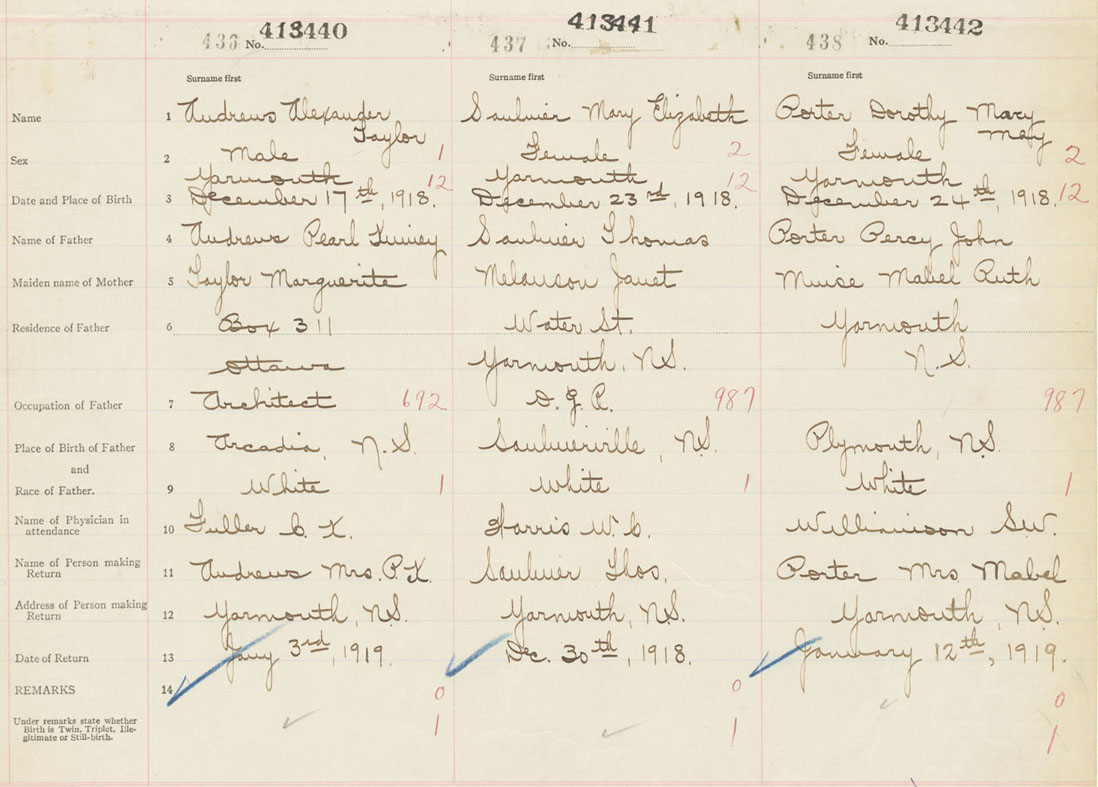 413440 413441 413442
433 No. 437 No. 438 No.
Surname first Surname first Surname first
Name 1 Andrews Alexander Saulnier Mary Elizabeth Porter Dorothy Mary
Taylor May
Sex 2 Male 1 Female 2 Female 2
Yarmouth 12 Yarmouth 12 Yarmouth 12
Date and Place of Birth 3 December 17th, 1918. December 23rd, 1918. December 24th, 1918.
Name of Father 4 Andrews Pearl Kinney Saulnier Thomas Porter Percy John
Maiden name of Mother 5 Taylor Marguerite Melanson Janet Muise Mabel Ruth
Residence of Father 6 Box 311 Water St. Yarmouth
Ottawa Yarmouth, N.S. N.S.
Occupation of Father 7 Architect 692 987 987
Place of Birth of Father 8 Arcadia, N.S. Saulnierville, N.S. Plymouth, N.S.
and
Race of Father. 9 White 1 White 1 White 1
Name of Physician in
attendance 10 Fuller L. K. Harris W. C. Williamson S.W.
Name of Person making
Return 11 Andrews Mrs. P.K. Saulnier Thos. Porter Mrs. Mabel
Address of Person making
Return 12 Yarmouth, N.S. Yarmouth, N.S. Yarmouth, N.S.
Date of Return 13 Jany 3rd, 1919. Dec. 30th, 1918. January 12th, 1919.
REMARKS 14 0 0 0
Under remarks state whether
Birth is Twin, Triplet, Ille-
gitimate or Still-birth. 1 1 1